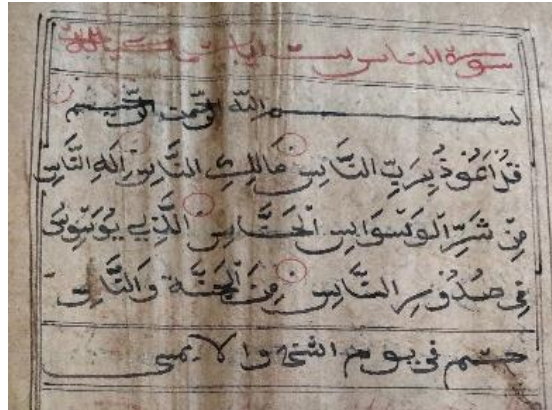 سورة الناس ست ايات
بسم الله الرحمن الرحيم
قُلْ اَعُوذُ بِرَبِّ النَّاسِ مَالِكِ النَّاسِ اِلَهِ النَّاسِ
مِنْ شَرِّ الْوَسْوَاسِ الْخَنَّاسِ الَّذِي يُوَسْوِسُ
فِي صُدُورِ النَّاسِ مِنَ الْجِنَّةِ وَالنَّاسِ
ختم في يوم